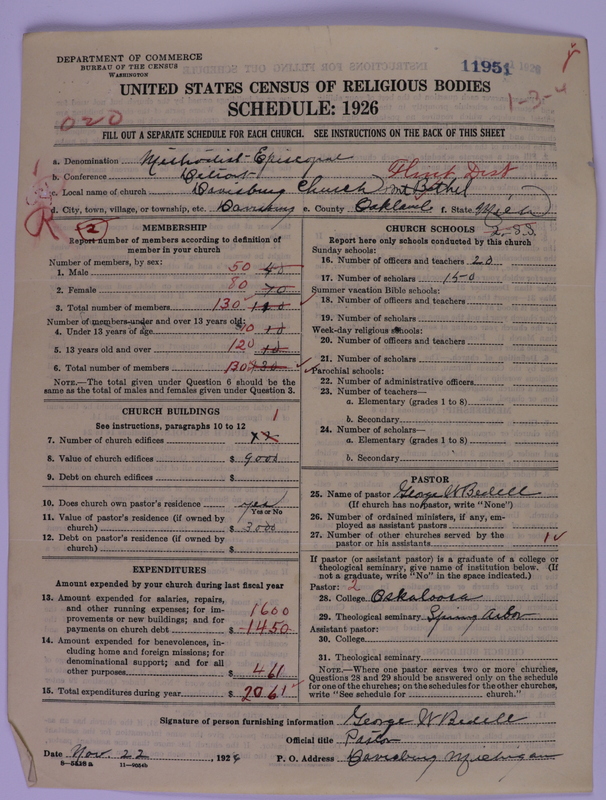 DEPARTMENT OF COMMERCE
BUREAU OF THE CENSUS
WASHINGTON
11951 1926
UNITED STATES CENSUS OF RELIGIOUS BODIES
SCHEDULE: 1926
1-3-4
020
FILL OUT A SEPARATE SCHEDULE FOR EACH CHURCH. SEE INSTRUCTIONS ON THE BACK OF THIS SHEET
a. Denomination Methodist-Episcopal
b. Conference Detroit Flint Dist
c. Local name of church Davisburg Church Mt Bethel
d. City, town, village, or township, etc. Davisburg e. County Oakland f. State Mich
2
MEMBERSHIP
Report number of members according to definition of member in your church
Number of members, by sex:
1. Male 50
2. Female 80
3. Total number of members 130
Number of members under and over 13 years old:
4. Under 13 years of age 10
5. 13 years old and over 120
6. Total number of members 130
NOTE.—The total given under Question 6 should be the
same as the total of males and females given under Question 3.
CHURCH BUILDINGS
See instructions, paragraphs 10 to 12
7. Number of church edifices 1
8. Value of church edifices $ 9000
9. Debt on church edifices $
10. Does church own pastor's residence yes
Yes or No
11. Value of pastor's residence (if owned by
church) $ 3000
12. Debt on pastor's residence (if owned by
church) $
EXPENDITURES
Amount expended by your church during last fiscal year
13. Amount expended for salaries, repairs,
and other running expenses; for im-
provements or new buildings; and for
payments on church debt $ 1600
1450
14. Amount expended for benevolences, in-
cluding home and foreign missions; for
denominational support; and for all
other purposes $ 461
15. Total expenditures during year $ 2061
CHURCH SCHOOLS 2-S.S.
Report here only schools conducted by this church
Sunday schools:
16. Number of officers and teachers 20
17. Number of scholars 150
Summer vacation Bible schools:
18. Number of officers and teachers
19. Number of scholars
Week-day religious schools:
20. Number of officers and teachers
21. Number of scholars
Parochial schools:
22. Number of administrative officers
23. Number of teachers—
a. Elementary (grades 1 to 8)
b. Secondary
24. Number of scholars—
a. Elementary (grades 1 to 8)
b. Secondary
PASTOR
25. Name of pastor George W Bedell
(If church has no pastor, write "None")
26. Number of ordained ministers, if any, em-
ployed as assistant pastors
27. Number of other churches served by the
pastor or his assistants 1
If pastor (or assistant pastor) is a graduate of a college or
theological seminary, give name of institution below. (If
not a graduate, write "No" in the space indicated.)
Pastor: 2
28. College Oskaloosa
29. Theological seminary Spring Arbor
Assistant pastor:
30. College
31. Theological seminary
NOTE.—Where one pastor serves two or more churches,
Questions 28 and 29 should be answered only on the schedule
for one of the churches; on the schedules for the other churches,
write "See schedule for ........ church."
Signature of person furnishing information George W Bedell
Official title Pastor
Date Nov. 22, 1926 P. O. Address Davisburg Michigan
8-5428a